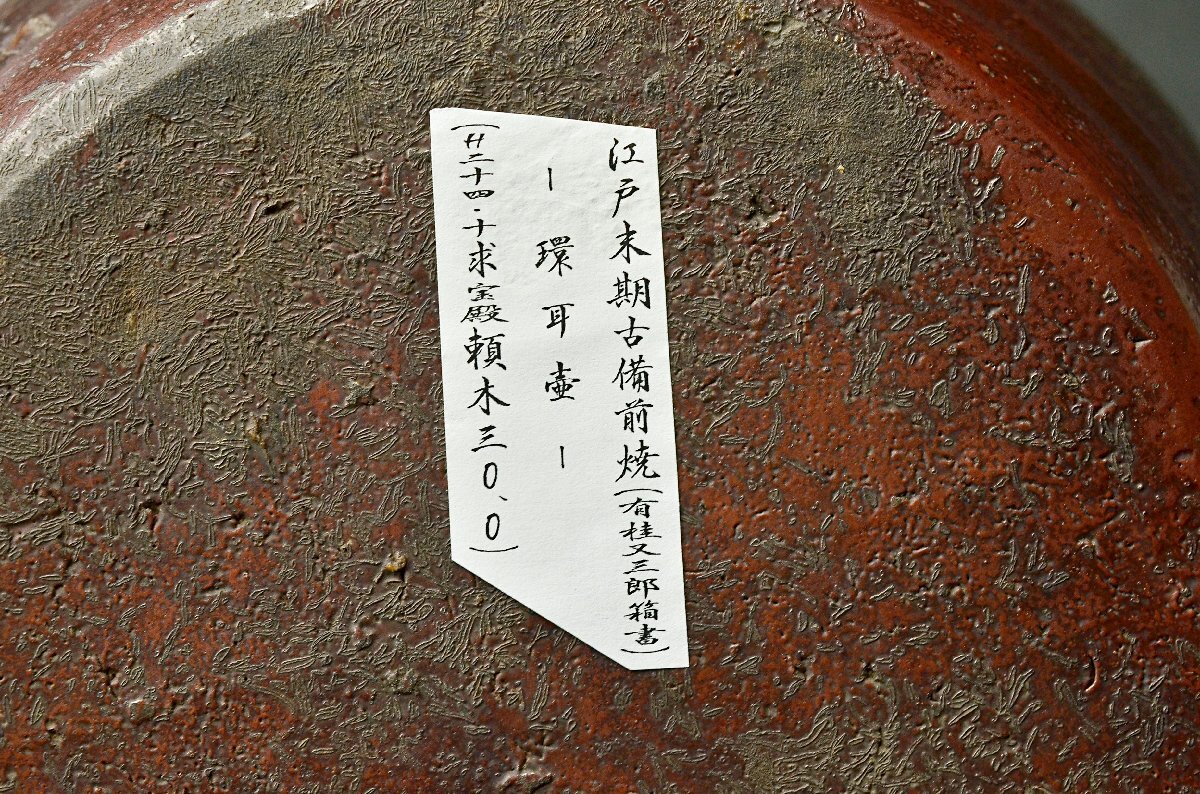 江戸末期古備前焼(有桂又三郎箱書)
ー環耳壷ー
(H二十四・十求宝殿頼木三〇、〇)